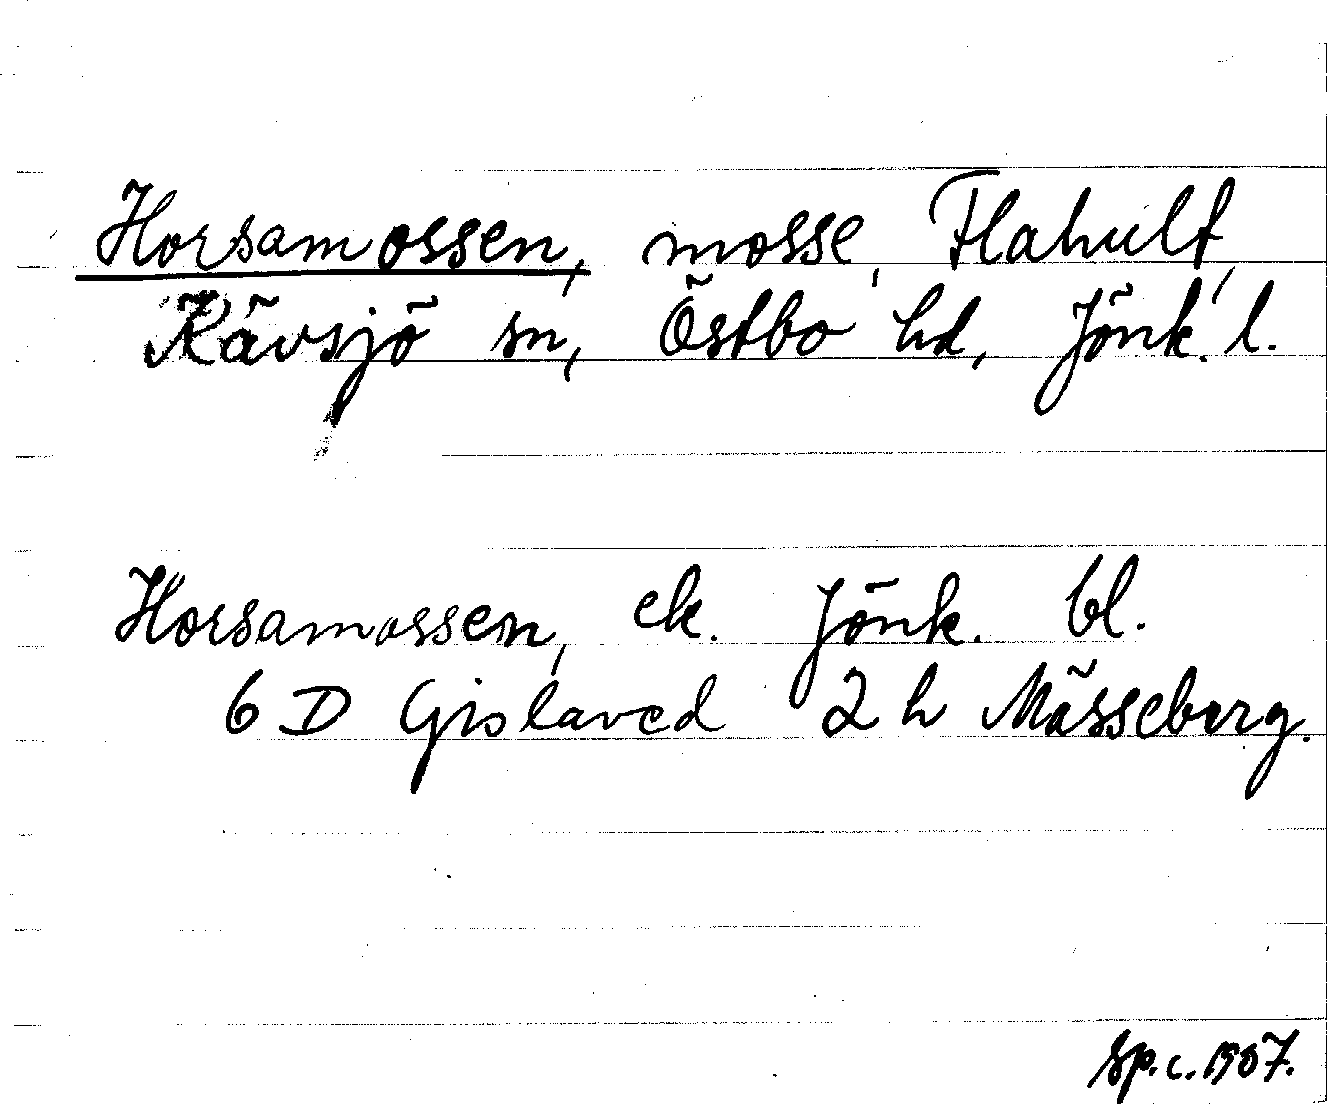 Horsamossen, mosse, Flahult,
Kävsjö sn, Östbo hd, Jönk. l.
Horsamossen, ek. Jönk. bl.
6 D Gislaved 2 h Mässeberg.
Sp. c. 1967.